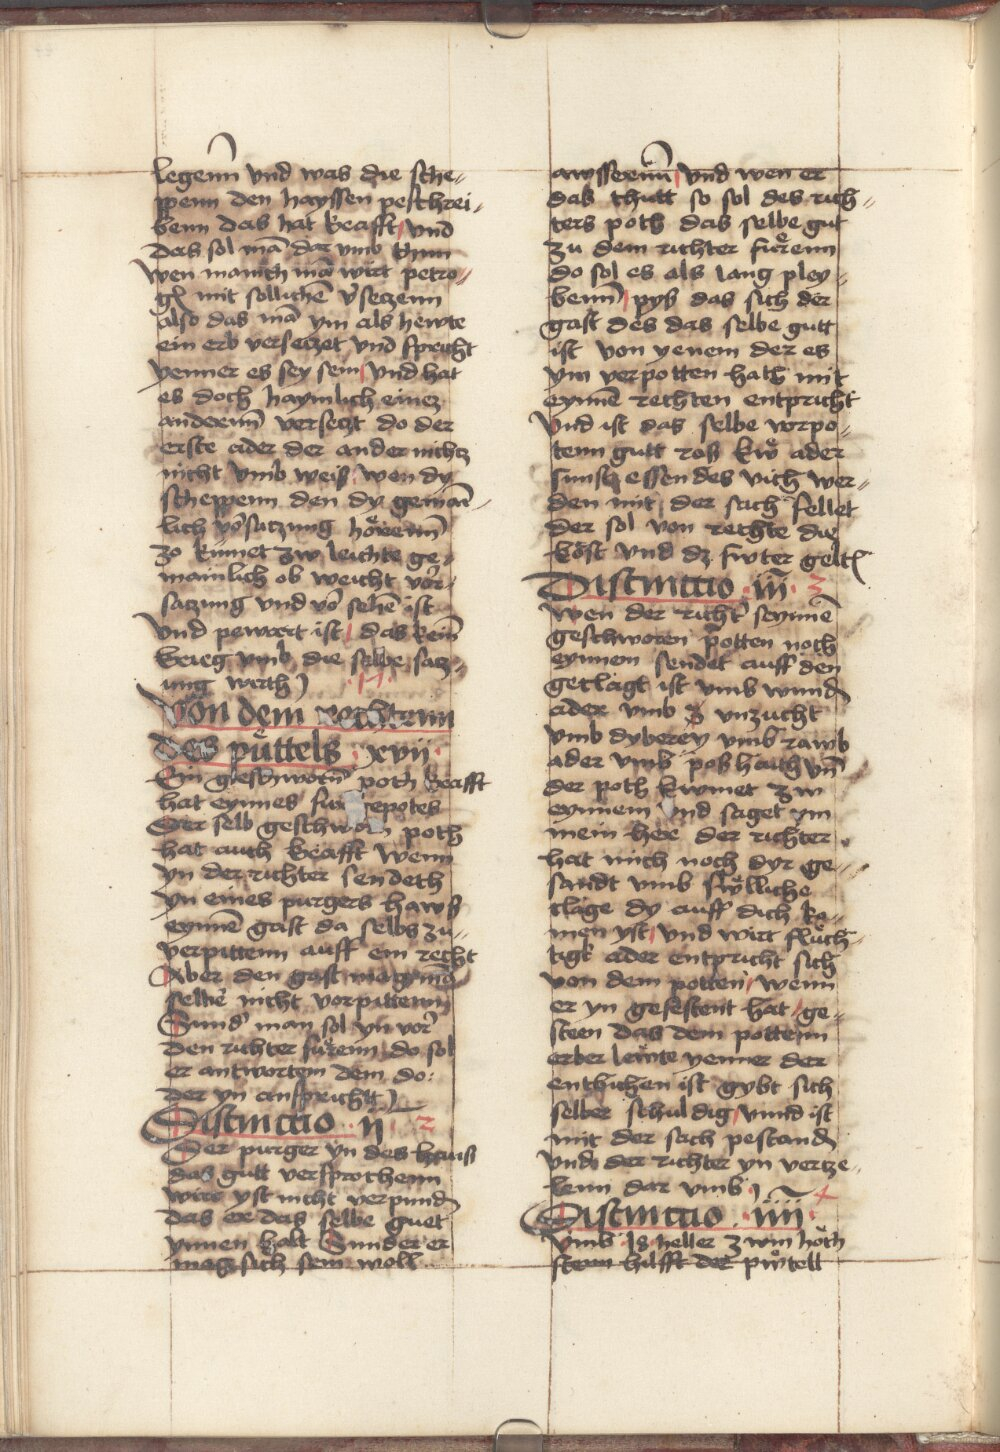 legenn vnd was die sche-
ppenn den hayssen peschrei-
benn das hat krafft vnd
das sol mā dar vmb thun
wen manich mā wirt petro-
gē mit sollichē v̓seczenn
also das mā ym als hewte
ein erb verseczet vnd spricht
yenner es sey sein vnd hat
es doch haymlich einez
anderenn versecz do der
erste ader der ander nichtz
nicht vmb weiß wen dy
scheppenn den dy gemai-
lich vo̓satzung hörennn
zo kumet zw leichte ge-
mainlich ob weicht vor-
satzung vnd vo̓ sehē ist
vnd pewert ist das kein
krieg vmb die selbe satz-
ung werth
Von dem rechtenn
des püttels xvii
Ein geschworn̄ poth krafft
hat eynnes fur gepotes
Der selb geschworn poth
hat auch krafft wenn
yn der richter sendeth
yn eines purgers hawß
eynnē gast da selbs zu-
verpittenn auff ein recht
Aber den gast mag mā
selbē nicht vorpittenn
Sund̓ man sol yn vor
den richter fürenn do sol
er antwortem dem do
der yn anspricht
Distinctio ii 2
Der purger yn des hauß
das gutt versprochenn
wirt yst nicht verpund̄
das er das selbe guet
ynnen halt Sunder er
mag sich sein woll
awsserenn vnd wen er
das thutt so sol des rich-
ters poth das selbe gut
zu dem richter fürenn
do sol es als lang pley-
benn pyß das sich der
gast des das selbe gutt
ist von yenem der es
ym verpotten hath mit
eynnē rechten entpricht
Vnd ist das selbe vorpo-
tenn gutt roß kw̓ ader
sunst essendes vich wer-
den mit der sach fellet
der sol von rechte die
köst vnd dz futer geltn̄
Distinctio iii 3
Wen der richt̓ seynnē
geschworen potten noch
eynnem sendet auff den
geclagt ist vmb wund̄
ader vmb vnzucht
vmb dyberey vmb rawb
ader vmb poßhaith vn̄
der poth kwmet zw
eynnem vnd saget ym
mein here der richter
hat mich noch dyr ge-
sandt vmb swlliche
clage dy auff dich ko-
men yst vnd wirt fluch-
tigk ader entpricht sich
von dem potten wenn
er yn gefestent hat ge-
steen das dem pottenn
erber lewte yenner der
entwichen ist gybt sich
selber schuldig vnnd ist
mit der sach pestand̄
vnd der richter yn vertze-
lenn dar vmb
Distinctio iiii 4
Vmb 18 heller zwm höch
stenn hilfft der pw̓tell